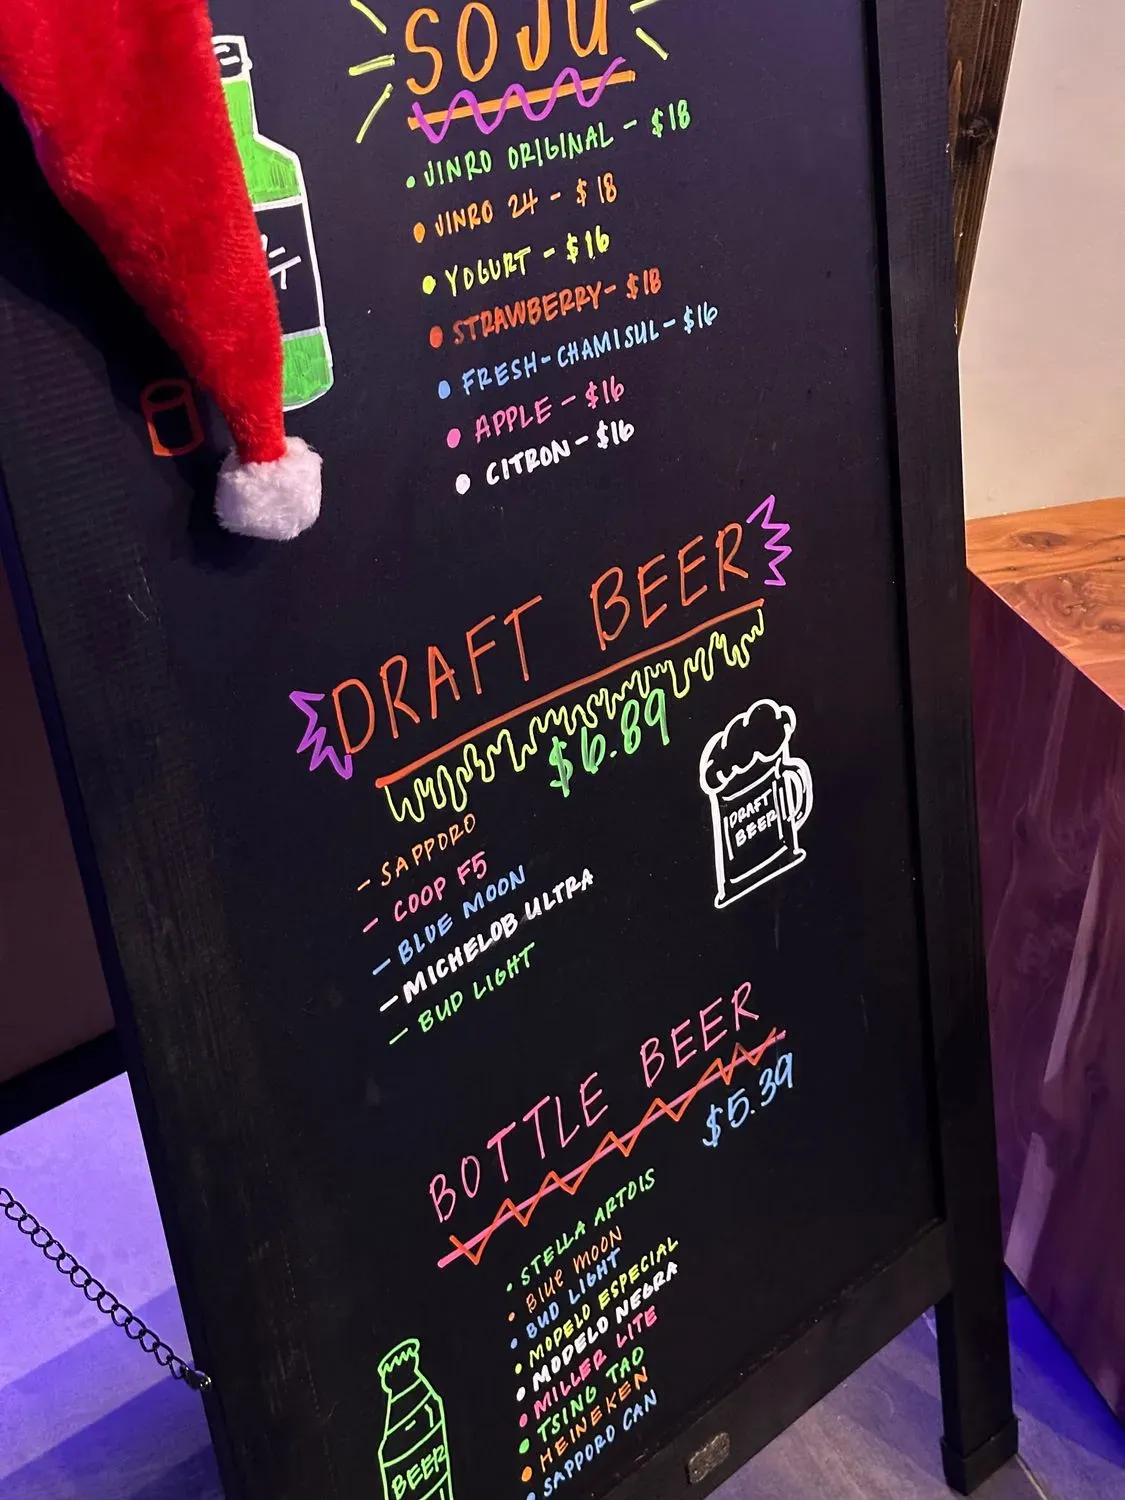 SOJU
• JINRO ORIGINAL - $18
• JINRO 24 - $18
• YOGURT - $16
• STRAWBERRY - $18
• FRESH-CHAMISUL - $16
• APPLE - $16
• CITRON - $16
DRAFT BEER
$6.89
- SAPPORO
- COOP F5
- BLUE MOON
- MICHELOB ULTRA
- BUD LIGHT
DRAFT
BEER
BOTTLE BEER
$5.39
• STELLA ARTOIS
• BLUE MOON
• BUD LIGHT
• MODELO ESPECIAL
• MODELO NEGRA
• MILLER LITE
• TSING TAO
• HEINEKEN
• SAPPORO CAN
BEER